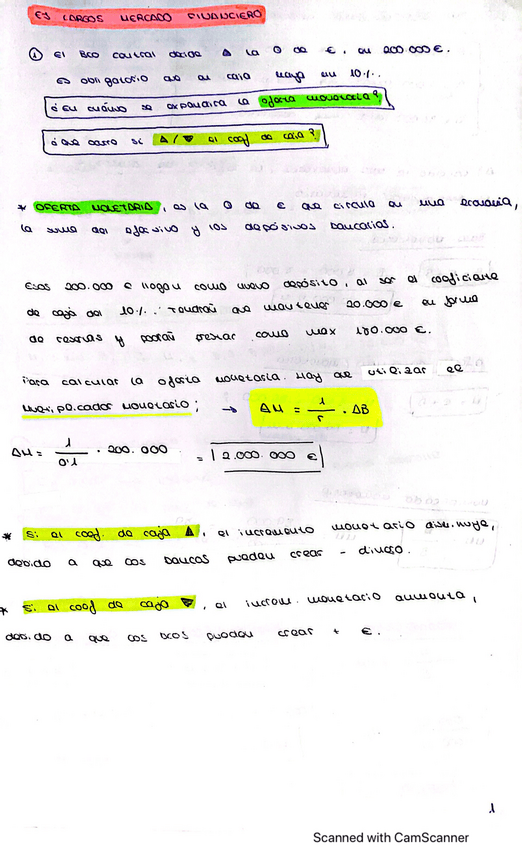 EJ LARGOS MERCADO FINANCIERO
① El Bco central decide ▲ la Q de €, en 200.000 €.
Es obligatorio que en caja haya un 10%.
¿En cuánto se expandirá la oferta monetaria?
¿Qué pasará si ▲/▼ el coef de caja?
* OFERTA MONETARIA, es la Q de € que circula en una economía,
la suma del efectivo y los depósitos bancarios.
Esos 200.000 € llegan como nuevo depósito, al ser el coeficiente
de caja del 10%. Tendrán que mantener 20.000 € en forma
de reservas y podrán prestar como max 180.000 €.
Para calcular la oferta monetaria. Hay que utilizar el
multiplicador monetario; → ΔM = 1/r · ΔB
ΔM = 1/0'1 · 200.000 = 2.000.000 €
* Si el coef. de caja ▲, el incremento monetario disminuye,
debido a que los bancos pueden crear - dinero.
* Si el coef de caja ▼, el increm. monetario aumenta,
debido a que los bcos pueden crear + €.
1
Scanned with CamScanner